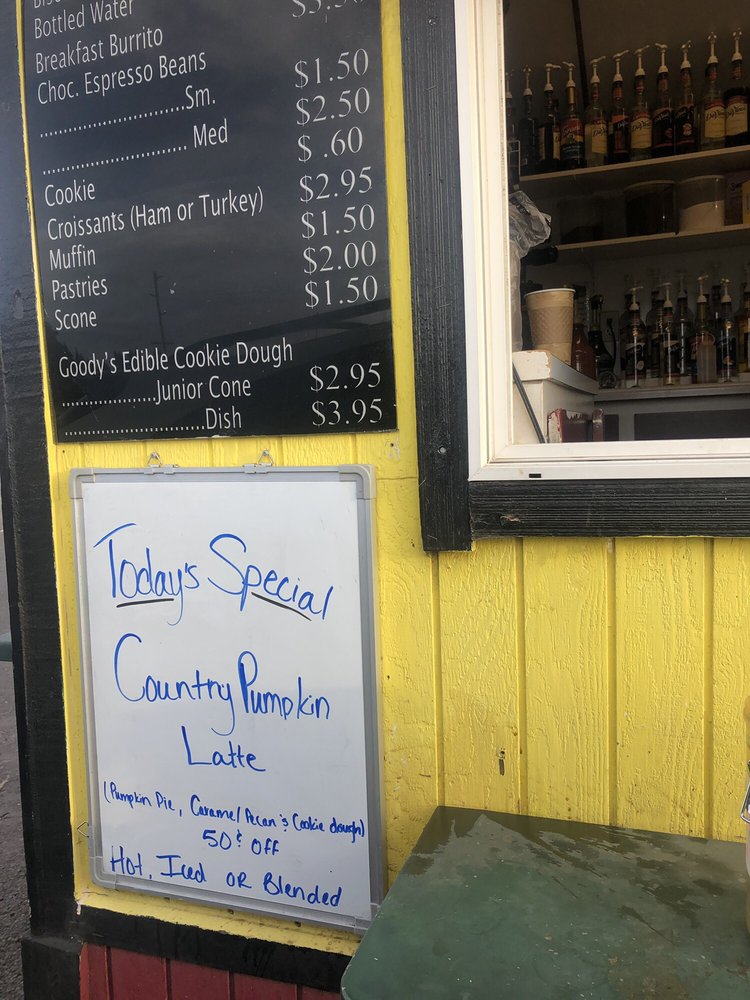 Bottled Water
Breakfast Burrito
Choc. Espresso Beans
..........................Sm. $1.50
.......................... Med $2.50
Cookie $ .60
Croissants (Ham or Turkey) $2.95
Muffin $1.50
Pastries $2.00
Scone $1.50
Goody's Edible Cookie Dough
..................Junior Cone $2.95
..........................Dish $3.95
Today's Special
Country Pumpkin
Latte
(Pumpkin Pie, Caramel Pecan & Cookie dough)
50¢ off
Hot, Iced OR Blended